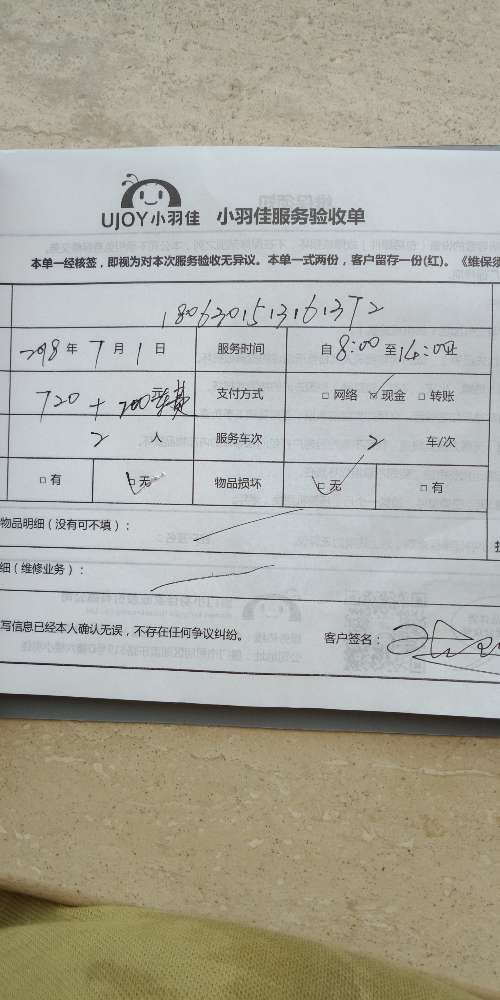 UJOY小羽佳 小羽佳服务验收单
本单一经核签，即视为对本次服务验收无异议。本单一式两份，客户留存一份(红)。《维保须
1806301513161372
2018 年 7 月 1 日 服务时间 自 8:00 至 14:00止
720 + 200车费 支付方式 □ 网络 □ 现金 □ 转账
2 人 服务车次 2 车/次
□ 有 □ 无 物品损坏 □ 无 □ 有
物品明细（没有可不填）：
细（维修业务）：
写信息已经本人确认无误，不存在任何争议纠纷。 客户签名：